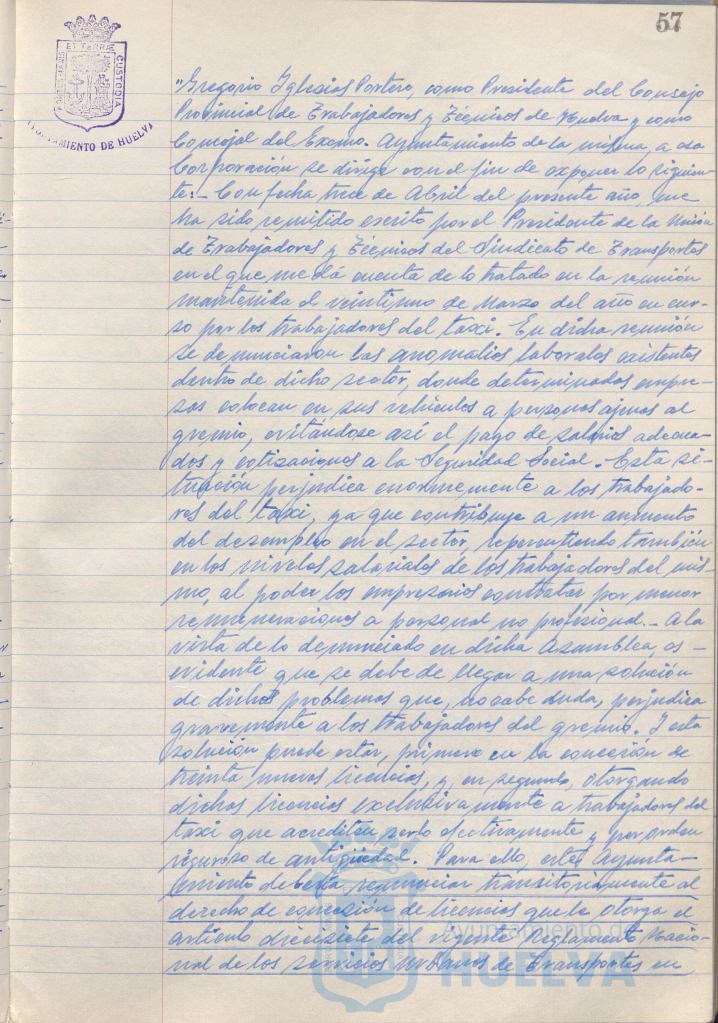 57
PORTUS MARIS
ET TERRÆ
CUSTODIA
AYUNTAMIENTO DE HUELVA
"Gregorio Iglesias Portero, como Presidente del Consejo
Provincial de Trabajadores y Técnicos de Huelva y como
Concejal del Excmo. Ayuntamiento de la misma, a esa
Corporación se dirige con el fin de exponer lo siguien-
te:- Con fecha trece de Abril del presente año, me
ha sido remitido escrito por el Presidente de la Unión
de Trabajadores y Técnicos del Sindicato de Transportes
en el que me dá cuenta de lo tratado en la reunión
mantenida el veintiuno de Marzo del año en cur-
so por los trabajadores del taxi. En dicha reunión
se denunciaron las anomalías laborales existentes
dentro de dicho sector, donde determinadas empre-
sas colocan en sus vehículos a personas ajenas al
gremio, evitándose así el pago de salarios adecua-
dos y cotizaciones a la Seguridad Social. Esta si-
tuación perjudica enormemente a los trabajado-
res del taxi, ya que contribuye a un aumento
del desempleo en el sector, repercutiendo también
en los niveles salariales de los trabajadores del mis-
mo, al poder los empresarios contratar por menor
remuneraciones a personal no profesional.- A la
vista de lo denunciado en dicha Asamblea, es -
evidente que se debe de llegar a una solución
de dichos problemas que, no cabe duda, perjudica
gravemente a los trabajadores del gremio. Y esta
solución puede estar, primero en la concesión de
treinta nuevas licencias, y, en segundo, otorgando
dichas licencias exclusivamente a trabajadores del
taxi que acrediten serlo efectivamente y por orden
riguroso de antigüedad. Para ello, este Ayunta-
miento deberá renunciar transitoriamente al
derecho de concesión de licencias que le otorga el
artículo diecisiete del vigente Reglamento Nacio-
nal de los Servicios Urbanos de Transportes en
Ayuntamiento de
HUELVA